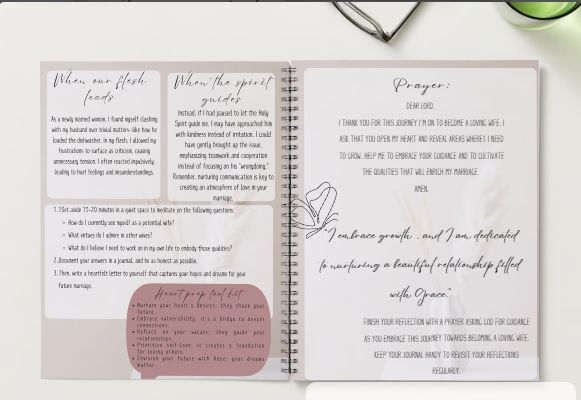 When our flesh
leads
As a newly married woman, I found myself clashing
with my husband over trivial matters-like how he
loaded the dishwasher. In my flesh, I allowed my
frustrations to surface as criticism, causing
unnecessary tension. I often reacted impulsively,
leading to hurt feelings and misunderstandings.
When the spirit
guides
Instead, if I had paused to let the Holy
Spirit guide me, I may have approached him
with kindness instead of irritation. I could
have gently brought up the issue,
emphasizing teamwork and cooperation
instead of focusing on his "wrongdoing."
Remember, nurturing communication is key to
creating an atmosphere of love in your
marriage.
1. 1Set aside 15-20 minutes in a quiet space to meditate on the following questions:
How do I currently see myself as a potential wife?
What virtues do I admire in other wives?
What do I believe I need to work on in my own life to embody those qualities?
2. Document your answers in a journal, and be as honest as possible.
3. Then, write a heartfelt letter to yourself that captures your hopes and dreams for your
future marriage.
Heart prep tool kit
Nurture your heart's desires; they shape your
future.
Embrace vulnerability; it's a bridge to deeper
connections.
Reflect on your values; they guide your
relationships.
Prioritize self-love; it creates a foundation
for loving others.
Envision your future with hope; your dreams
matter.
Prayer:
DEAR LORD,
I THANK YOU FOR THIS JOURNEY I'M ON TO BECOME A LOVING WIFE. I
ASK THAT YOU OPEN MY HEART AND REVEAL AREAS WHERE I NEED
TO GROW. HELP ME TO EMBRACE YOUR GUIDANCE AND TO CULTIVATE
THE QUALITIES THAT WILL ENRICH MY MARRIAGE.
AMEN.
"I embrace growth, and I am dedicated
to nurturing a beautiful relationship filled
with Grace."
FINISH YOUR REFLECTION WITH A PRAYER ASKING GOD FOR GUIDANCE
AS YOU EMBRACE THIS JOURNEY TOWARDS BECOMING A LOVING WIFE.
KEEP YOUR JOURNAL HANDY TO REVISIT YOUR REFLECTIONS
REGULARLY.